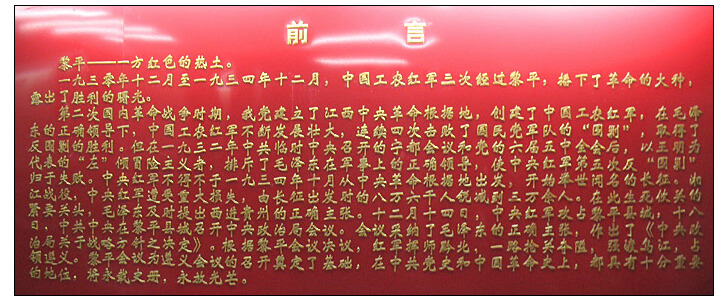 前言
黎平——一方红色的热土。
一九三零年十二月至一九三四年十二月，中国工农红军三次经过黎平，播下了革命的火种，
露出了胜利的曙光。
第二次国内革命战争时期，我党建立了江西中央革命根据地，创建了中国工农红军，在毛泽
东的正确领导下，中国工农红军不断发展壮大，连续四次击败了国民党军队的“围剿”，取得了
反围剿的胜利。但在一九三二年中共临时中央召开的宁都会议和党的六届五中全会后，以王明为
代表的“左”倾冒险主义者，排斥了毛泽东在军事上的正确领导，使中央红军第五次反“围剿”
归于失败，中央红军不得不于一九三四年十月从中央革命根据地出发，开始举世闻名的长征。湘
江战役，中央红军遭受重大损失，由长征出发时的八万六千人锐减到三万余人。在此生死攸关的
紧要关头，毛泽东及时提出西进贵州的正确主张。十二月十四日，中央红军攻占黎平县城，十八
日，中共中央在黎平县城召开中央政治局会议。会议采纳了毛泽东的正确主张，作出了《中央政
治局关于战略方针之决定》。根据黎平会议决议，红军挥师黔北，一路抢关夺隘，强渡乌江，占
领遵义。黎平会议为遵义会议的召开奠定了基础，在中共党史和中国革命史上，都具有十分重要
的地位，将永载史册，永放光芒。